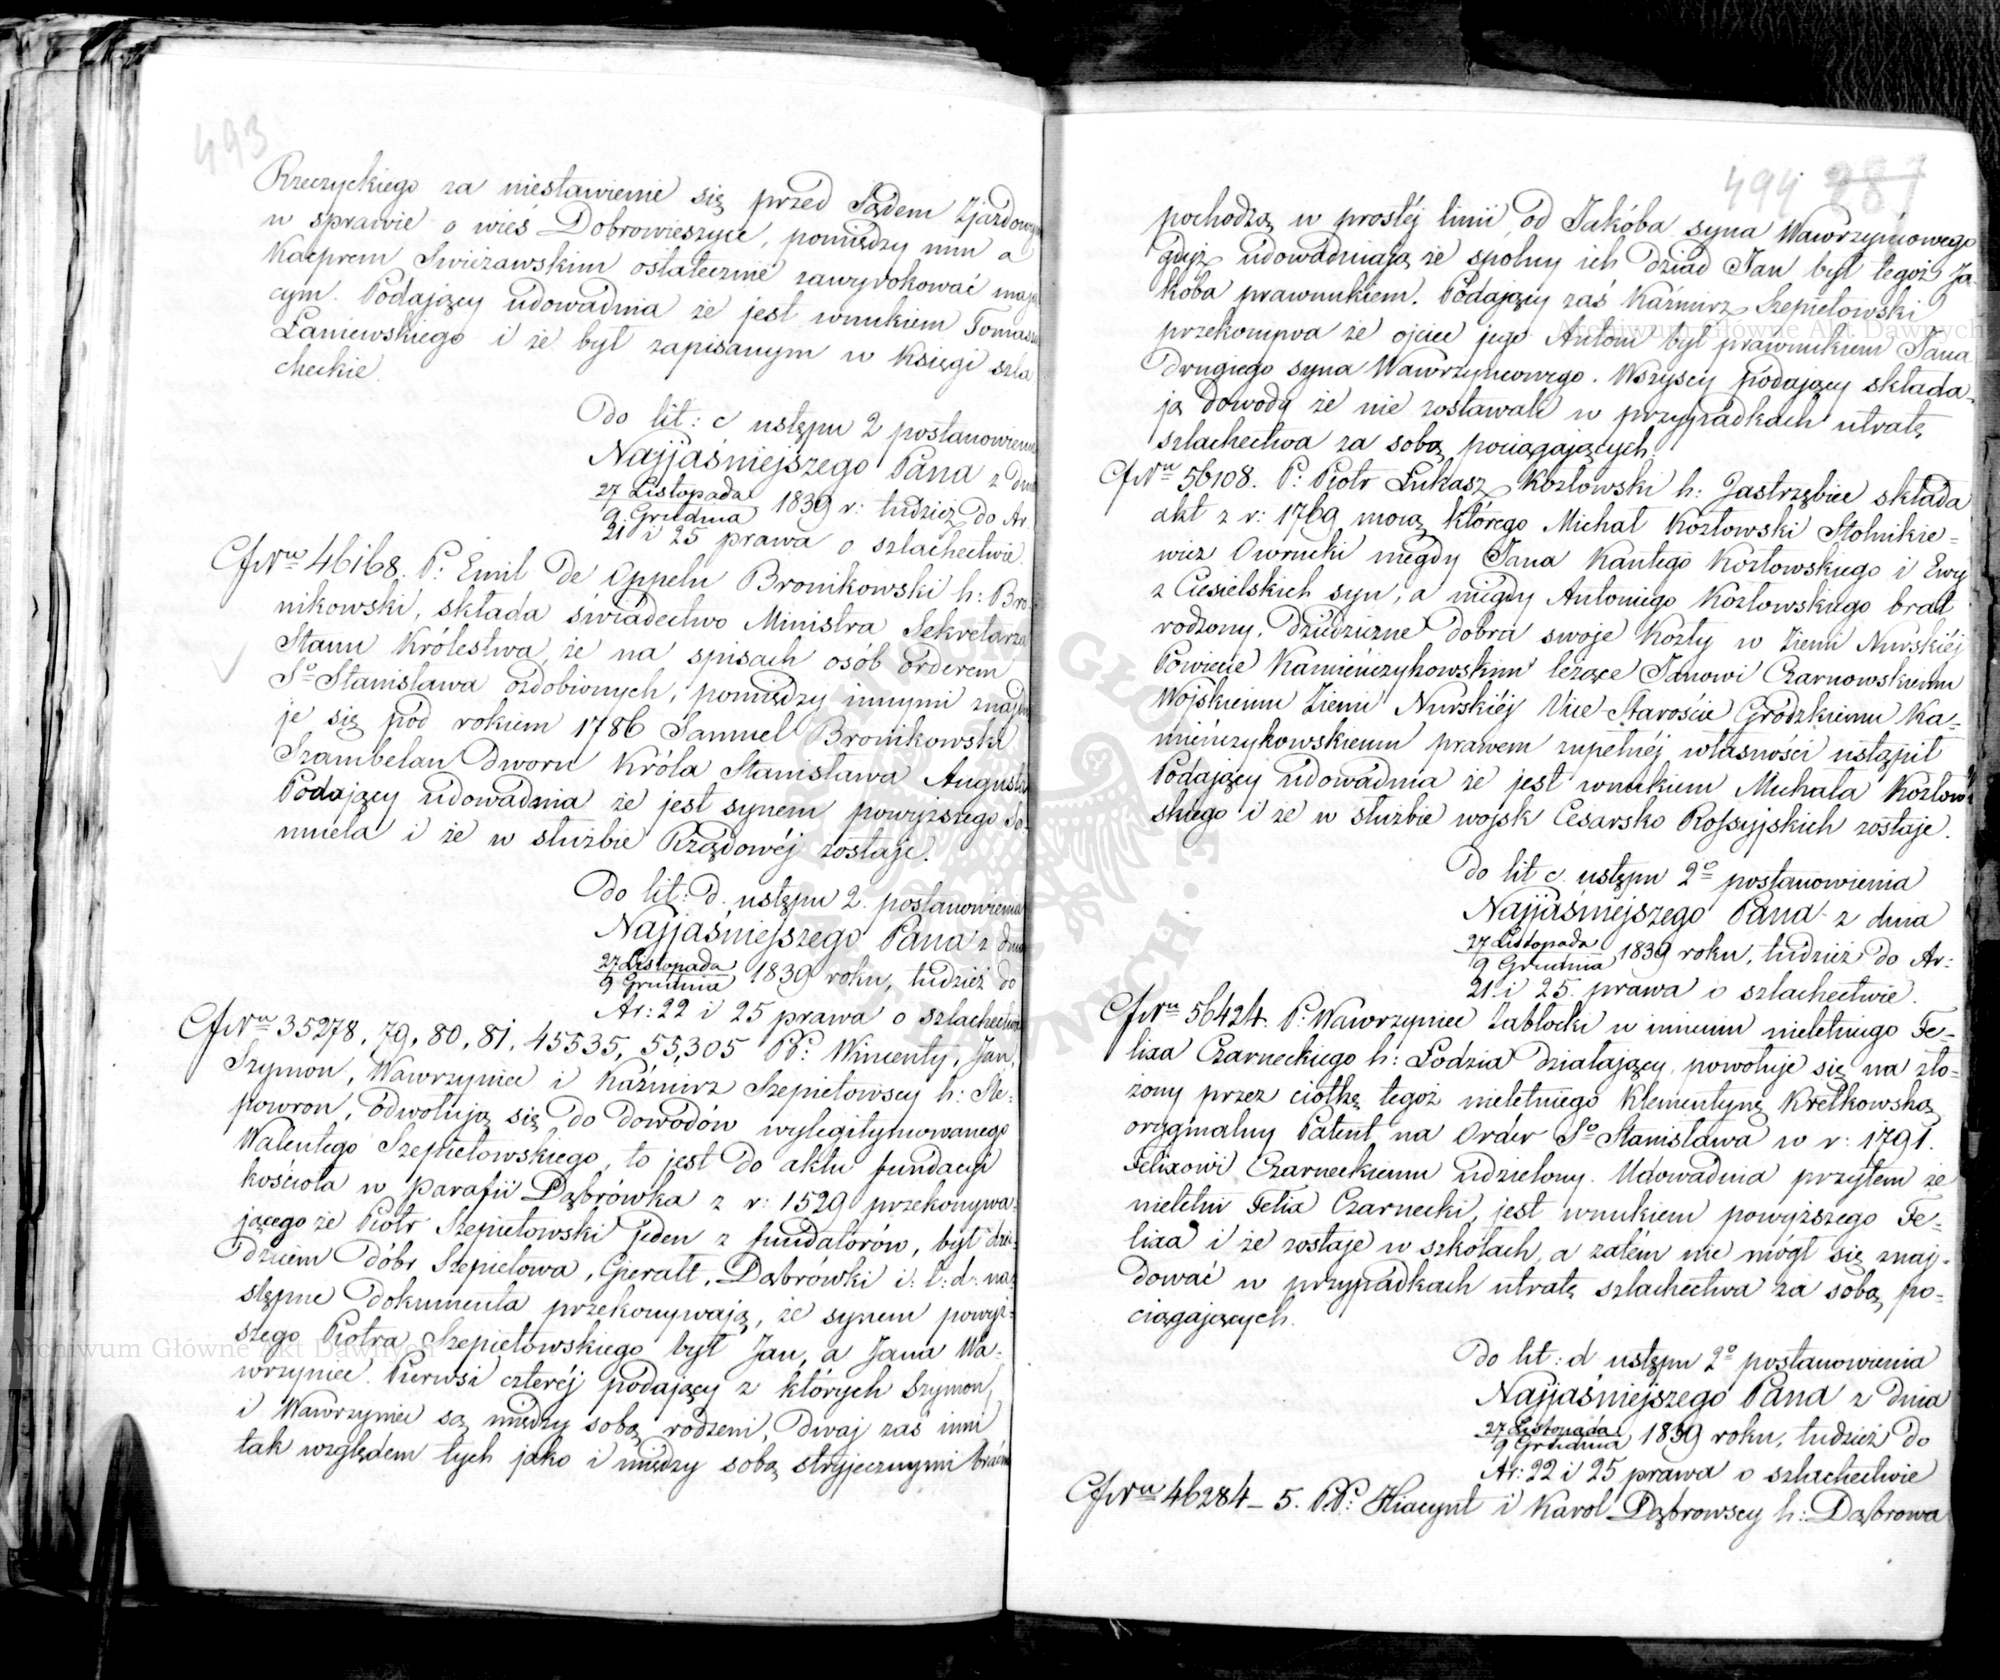 493
Rzeczyckiego za niestawienie się przed Sądem Zjazdowym
w sprawie o wieś Dobrowieszyce, pomiędzy nim a
Kacprem Swiéżawskim ostatecznie zawyrokować mają
cym. Podający udowadnia że jest wnukiem Tomasza
Łaniewskiego i że był zapisanym w Księgi szla
checkie.
Do lit: c ustępu 2 postanowienia
Najjaśniejszego Pana z dnia
27 Listopada
9 Grudnia 1839 r: tudzież do Ar.
21 i 25 prawa o szlachectwie
Nru 46168. P: Emil de Oppeln Bronikowski h: Bro-
nikowski, składa świadectwo Ministra Sekretarza
Stanu Królestwa, że na spisach osób orderem
Sgo Stanisława ozdobionych, pomiędzy innymi znajdu
je się pod rokiem 1786 Samuel Bronikowski
Szambelan Dworu Króla Stanisława Augusta
Podający udowadnia że jest synem powyższego Sa-
muela i że w służbie Rządowéj zostaje.
Do lit: d. ustępu 2. postanowienia
Najjaśniejszego Pana z dnia
27 Listopada
9 Grudnia 1839 roku, tudzież do
Ar: 22 i 25 prawa o szlachectwie
Nru 35278, 79, 80, 81, 45535, 55,305 PP: Wincenty, Jan,
Szymon, Wawrzyniec i Kaźmirz Szepietowscy h: Śle-
powron, odwołują się do dowodów wylegitymowanego
Walentego Szepietowskiego, to jest do aktu fundacyi
kościoła w parafii Dąbrówka z r: 1529 przekonywa-
jącego że Piotr Szepietowski jeden z fundatorów, był dzie-
dzicem dóbr Szepietowa, Gierałt, Dąbrówki i: t: d: na-
stępne dokumenta przekonywają, że synem powyż-
szego Piotra Szepietowskiego był Jan, a Jana Wa-
wrzyniec. Pierwsi czteréj podający z których Szymon,
i Wawrzyniec są między sobą rodzeni, dwaj zaś inni
tak względem tych jako i między sobą stryjecznymi braćmi
494 287
pochodzą w prostéj linii od Jakóba syna Wawrzyńcowego
gdyż udowadniają że spolny ich dziad Jan był tegoż Ja-
kóba prawnukiem. Podający zaś Kaźmirz Szepietowski
przekonywa że ojciec jego Antoni był prawnukiem Jana
drugiego syna Wawrzyńcowego. Wszyscy podający składa-
ją dowody że nie zostawali w przypadkach utratę
szlachectwa za sobą pociągających.
Nru 56108. P: Piotr Łukasz Kozłowski h: Jastrzębiec składa
akt z r: 1769 mocą którego Michał Kozłowski Stolnikie-
wicz Owrucki niegdy Jana Kantego Kozłowskiego i Ewy
z Ciesielskich syn, a niegdy Antoniego Kozłowskiego brat
rodzony, dziedziczne dobra swoje Kozły w Ziemi Nurskiéj
Powiecie Kamieńczykowskim leżące Janowi Czarnowskiemu
Wojskiemu Ziemi Nurskiéj Vice Staroście Grodzkiemu Ka-
mieńczykowskiemu prawem zupełnéj własności ustąpił
Podający udowadnia że jest wnukiem Michała Kozłow
skiego i że w służbie wojsk Cesarsko Rossyjskich zostaje.
Do lit c. ustępu 2o postanowienia
Najjaśniejszego Pana z dnia
27 Listopada
9 Grudnia 1839 roku, tudzież do Ar:
21 i 25. prawa o szlachectwie.
Nru 56424. P: Wawrzyniec Zabłocki w imieniu nieletniego Fe-
lixa Czarneckiego h: Łodzia działający, powołuje się na zło-
żony przez ciotkę tegoż nieletniego Klementynę Kretkowską
oryginalny Patent na Order Sgo Stanisława w r: 1791.
Felixowi Czarneckiemu udzielony. Udowadnia przytem że
nieletni Felix Czarnecki, jest wnukiem powyższego Fe-
lixa i że zostaje w szkołach, a zatém nie mógł się znaj-
dować w przypadkach utratę szlachectwa za sobą po-
ciągających.
Do lit: d ustępu 2o postanowienia
Najjaśniejszego Pana z dnia
27 Listopada
9 Grudnia 1839 roku, tudzież do
Ar: 22 i 25 prawa o szlachectwie
Nru 46284-5. PP: Hiacynt i Karol Dąbrowscy h: Dąbrowa
Archiwum Główne Akt Dawnych
Archiwum Główne Akt Dawnych